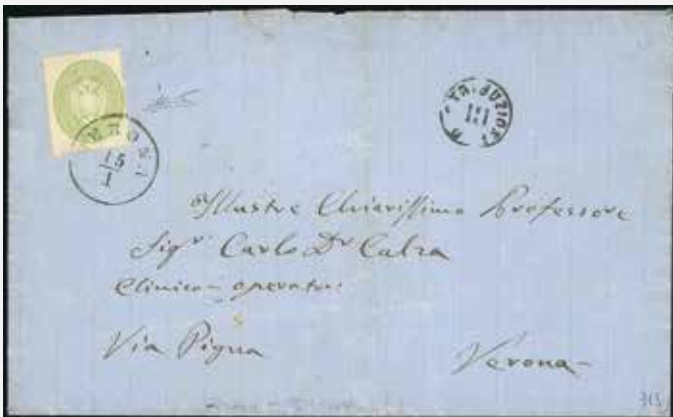 VERONA
15
1
DISTRIBUZIONE
III
Illustre Chiarissimo Professore
Sigr Carlo Dr Calza
Clinico-operatore
Via Pigna
Verona
313